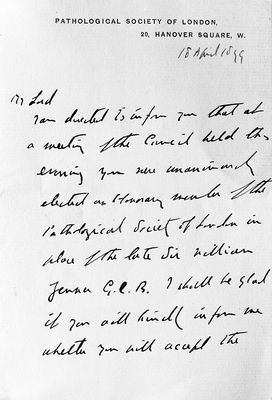 PATHOLOGICAL SOCIETY OF LONDON,
20, HANOVER SQUARE, W.
18 April 1899
My Lord
I am directed to inform you that at
a meeting of the Council held this
evening you were unanimously
elected an Honorary member of the
Pathological Society of London in
place of the late Sir William
Jenner G.C.B. I shall be glad
if you will kindly inform me
whether you will accept the